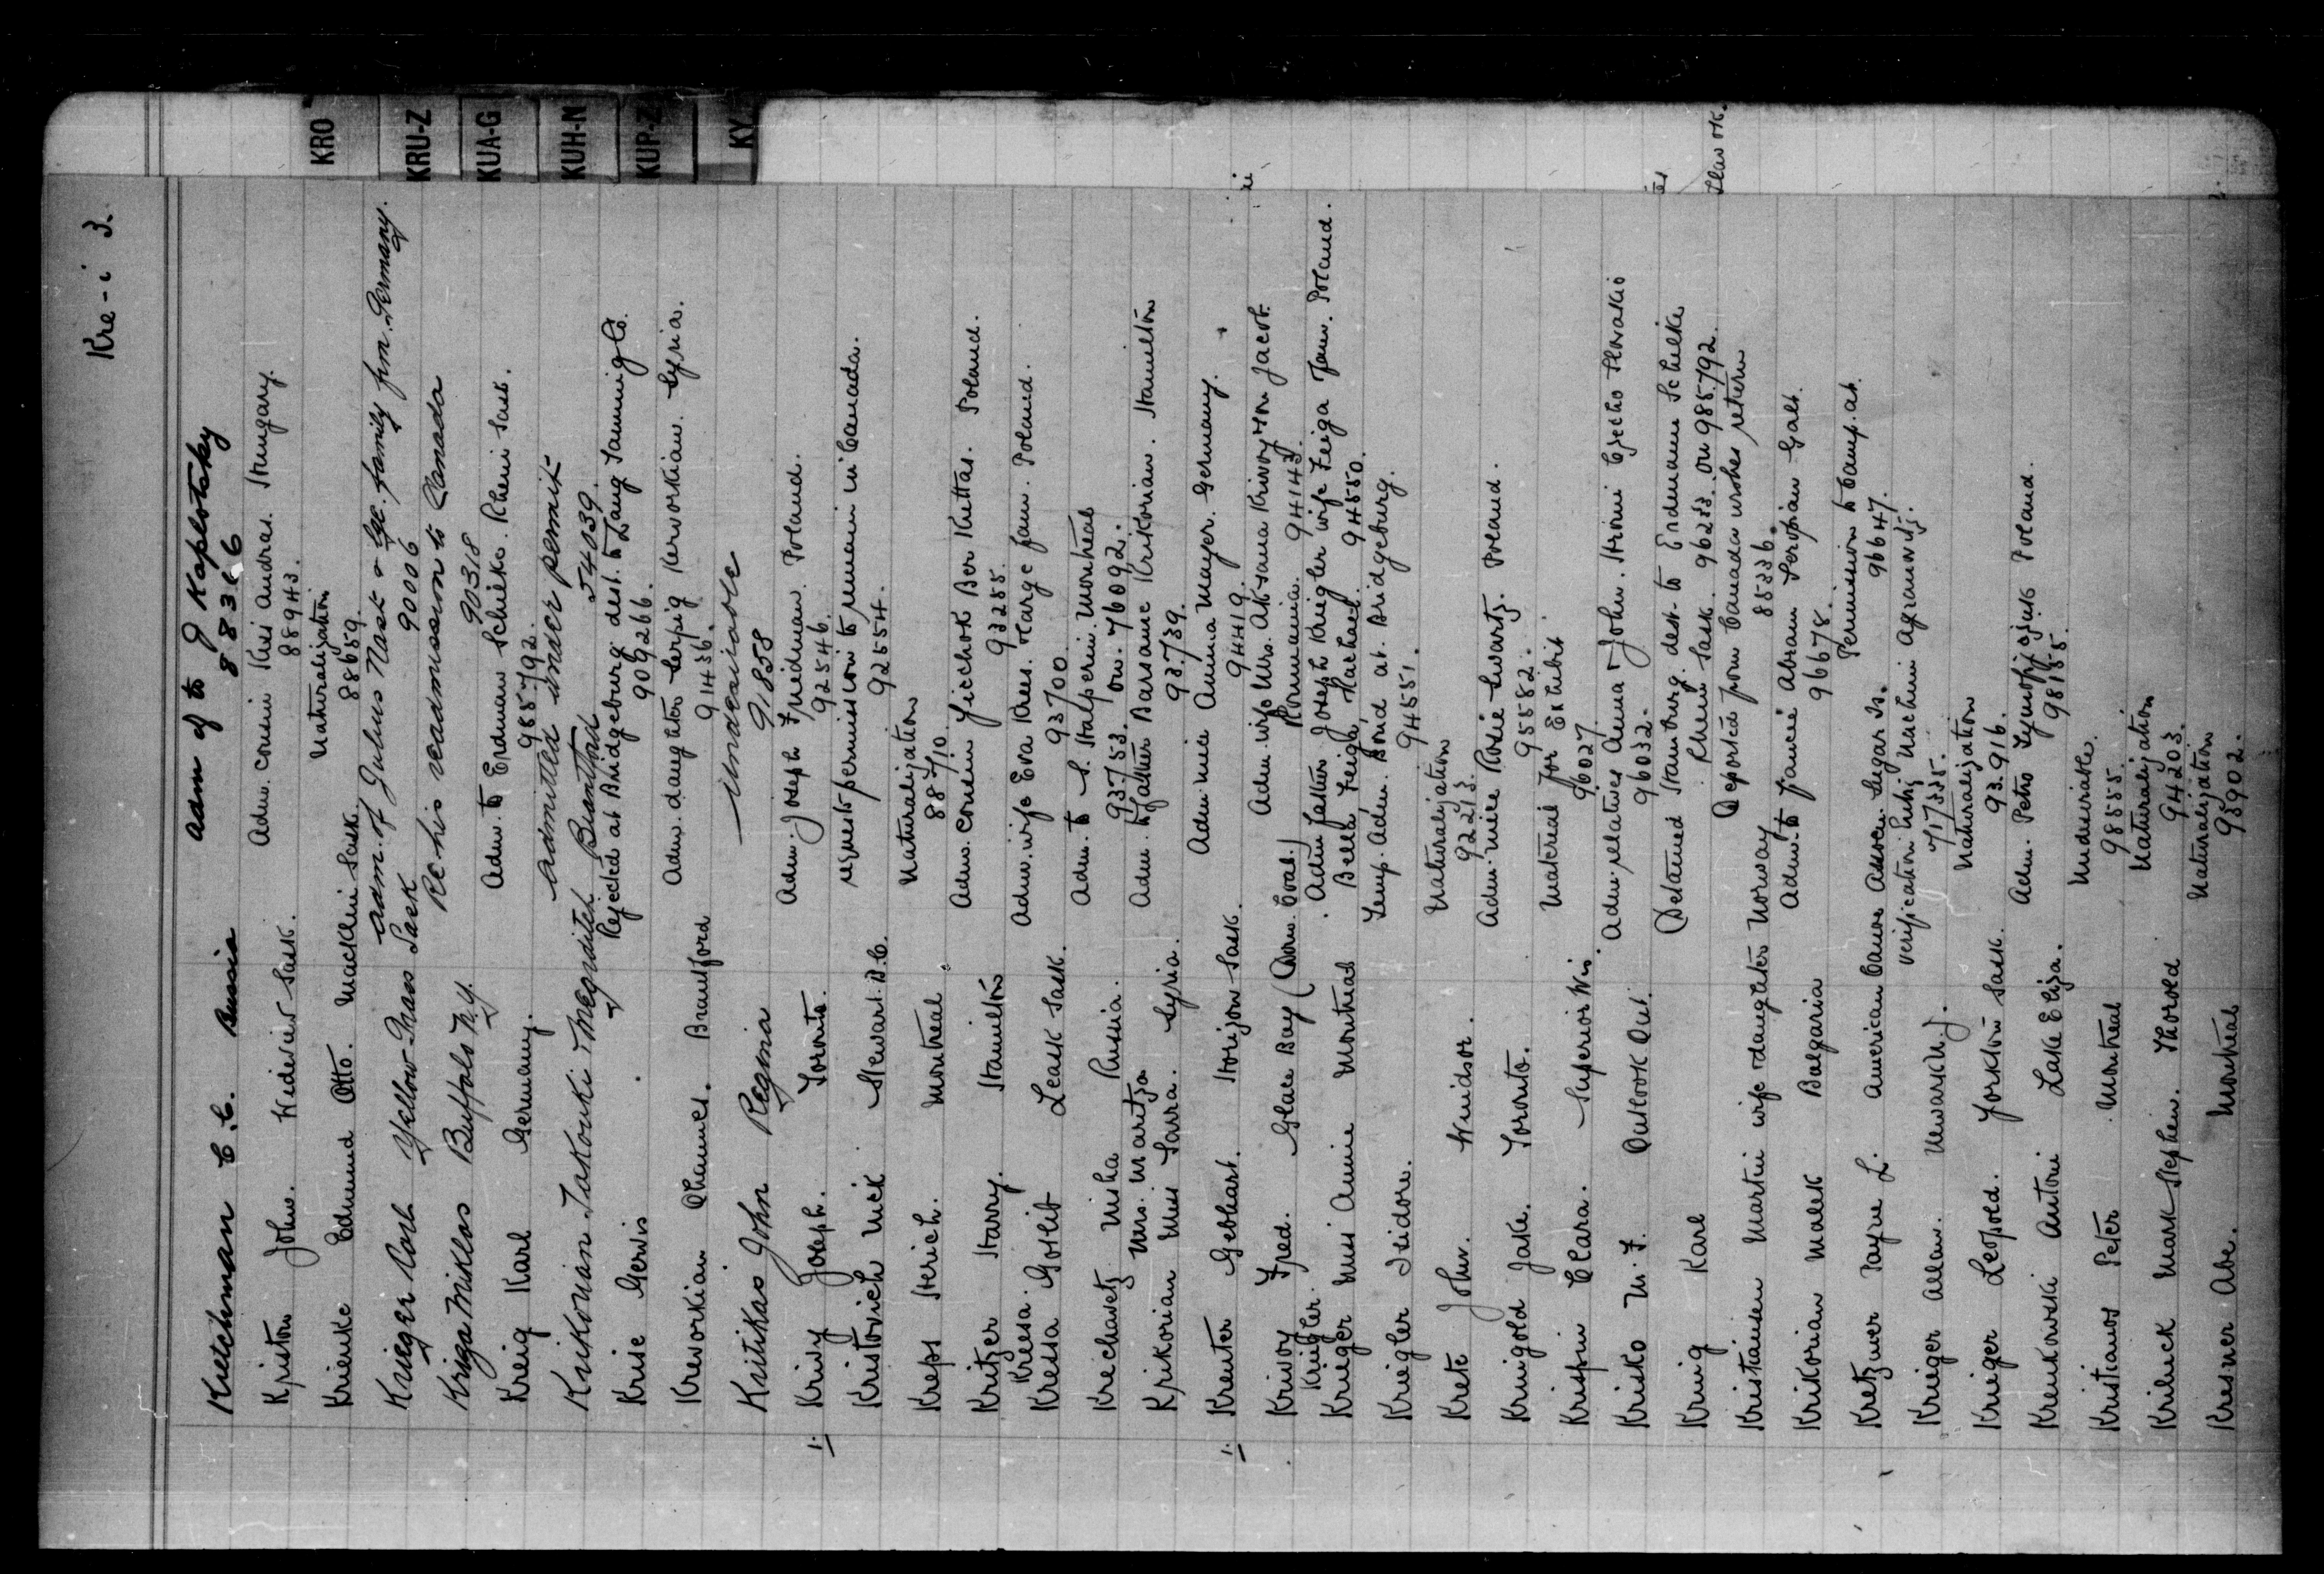 Kre-i 3.
KRO
KRU-Z
KUA-G
KUH-N
KUP-Z
KY
Kretchman C. C. Russia adm of to J Kaplotsky
88366
Kriston John. Wedever Sask. Adm. cousin Kusi Andras. Hungary.
88943.
Krienke Edmund Otto. Macklin Sask. Naturalization
88659.
Krieger Carl Yellow Grass Sask adm. of Julius Nast & family fm. Germany.
90006
Kriza Miklos Buffalo N.Y. Re his readmission to Canada
90318
Kreig Karl Germany. Adm. to Erdmann Schielke. Rhein Sask.
985792.
Krikorian Takouki & Megraditch Brantford admitted under permit
54039.
Krise Gervis Rejected at Bridgeburg dest. to Lang Tanning Co.
909266.
Krevorkian Ohannes. Brantford Adm. daughter Serpig Kervorkian. Syria.
91436.
Kritikas John Regina Undesirable
91858
1. Krivy Joseph. Toronto. Adm. Joseph Freidman. Poland.
92546.
Kristovich Nick Stewart. B.C. requests permission to remain in Canada.
92554.
Kreps Herich. Montreal Naturalization
88710.
Kritzer Harry. Hamilton Adm. cousin Jicchok Ber Kuttas. Poland.
93255.
Kreesa.
Kressa Gotlib Leask Sask. Adm. wife Eva Krees. & large fam. Poland.
93700.
Krechavetz Misha Russia. Adm. to S. Halperin. Montreal
93753. on. 76092.
Mrs. Maritza
Krikorian Miss Sarra. Syria. Adm. to father Barsame Krikorian. Hamilton
93739.
1. Kreuter Gebhart. Horizon Sask. Adm. niece Anna Mayer. Germany.
94419.
Krivoy Fred. Glace Bay (Dom. Coal.) Adm. wife Mrs. Aksana Krivoy & son Jacob.
Roumania. 94143.
Kriegler.
Krieger Miss Annie Montreal Adm father Joseph Kriegler wife Feiga fam. Poland.
Bella Feigh, Rachael. 94550.
Kriegler Isidore. Temp. Adm. Bond at. Bridgeburg.
94551.
Krete John. Windsor. Naturalization
92213.
Krungold Jake. Toronto. Adm. niece Rosie Swartz. Poland.
95582.
Krispin Clara. Superior Wis. Material for Exhibit.
96027
Krisko M. F. Outlook Ont. Adm. relatives Anna & John. Hroni Czecho Slovakio
96032.
Krinig Karl Detained Hamburg dest. to Erdmann Schielke
Rhein Sask. 96233. on 985792.
Kristiansen Martin wife & daughter Norway Deported from Canada wishes return
85336.
Krikorian Malek Bulgaria Adm. to fiancé Abram Seropian Galt.
96678.
Kretzner Payne L. American Cane Assocn. Sugar Is. Permission to Camp. at.
96647.
Krieger Allan. Newark N.J. verification ludg Nachmi Agranoff.
71735.
Krieger Leopold. Yorkton Sask. Naturalization
93.916.
Krenkowski Antoni Lake Eliza. Adm. Petro Poland.
98155.
Kristianos Peter Montreal Undesirable.
98555.
Kriluck Mark Stephen. Thorold Naturalization
94203.
Kresner Abe. Montreal Naturalization
95902.